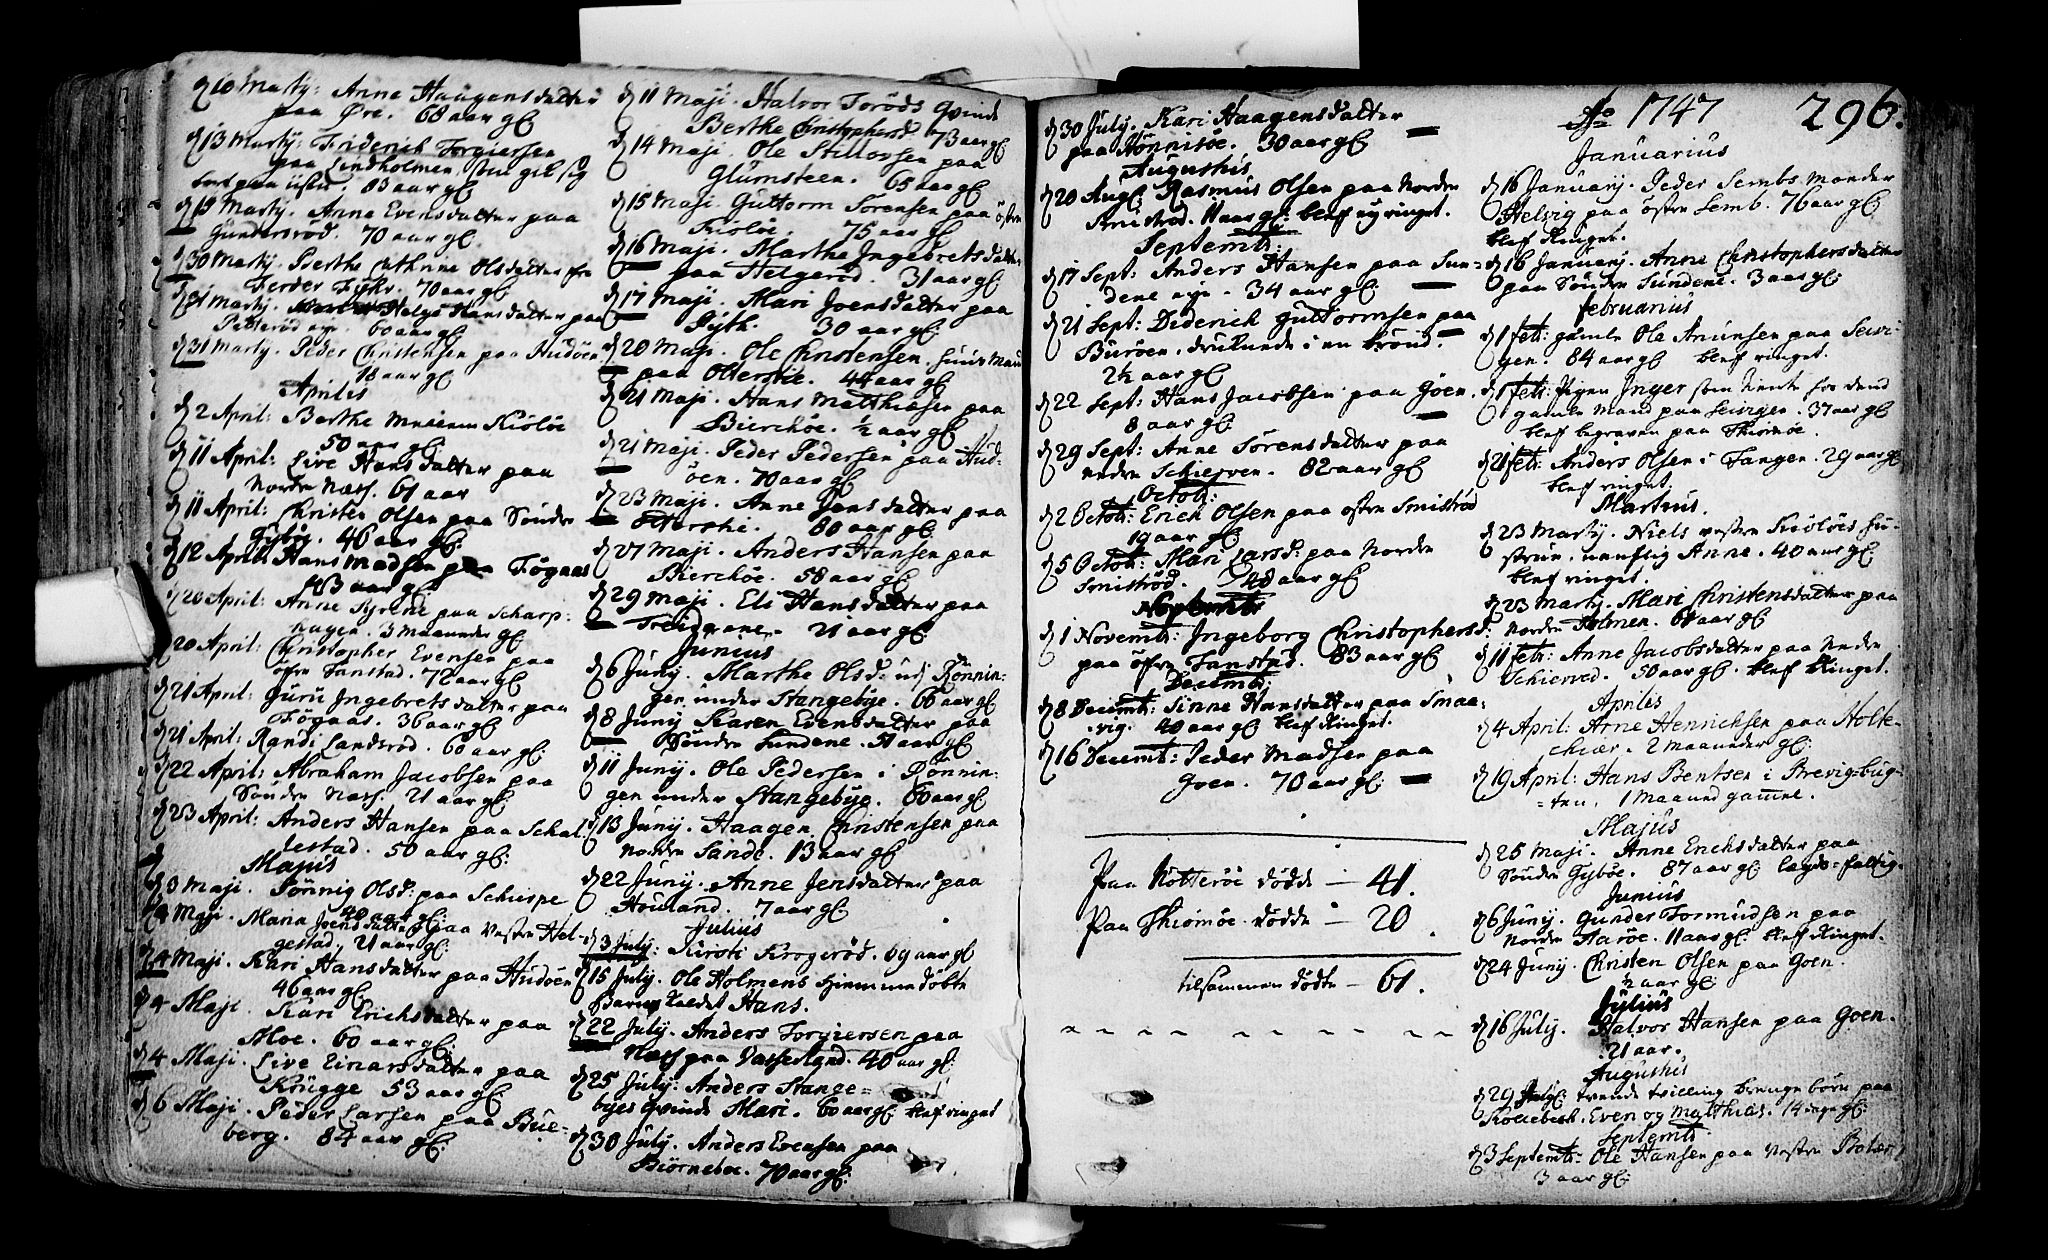 d 10 Martij: Anne Haagensdatter
paa Øre. 68 aar gl
d 13 Martij: Friderich Torgiersen
paa Lindholmen,
83 aar gl
d 19 Martij. Anne Evensdatter paa
Gundersrød. 70 aar gl.
d 30 Martij. Berthe Cathrine Olsdatter fra
70 aar gl
d 31 Martij. Helge Hansdatter paa
Petterød eye. 60 aar gl
d 31 Martij. Peder Christensen paa Hudøen
18 aar gl
Aprilis
d 2 April: Berthe Kioløe
50 aar gl.
d 11 April: Live Hansdatter paa
Nordre Næss. 61 aar
d 11 April: Christen Olsen paa Søndre
Gybøe. 46 aar gl:
d 12 April: Hans Madsen paa Føgaas
63 aar gl
d 20 April: Anne Kyrene paa Scharp-
hagen. 3 maaneder gl
d 20 April: Christopher Evensen paa
øfre Fanstad. 72 aar gl
d 21 April: Guru Ingebretsdatter paa
Føgaas. 36 aar gl
d 21 April: Randi Landsrød. 60 aar gl:
d 22 April: Abraham Jacobsen paa
Søndre Næss. 21 aar gl:
d 23 April: Anders Hansen paa Schal-
lestad. 50 aar gl:
Majus
d 3 Maji. Tønnig Olsd: paa Schierpe
40 aar gl:
d 4 Maji. Maria Joensdatter paa Vestre Hel-
gestad. 21 aar gl:
d 4 Maji. Kari Hansdatter paa Hudøen
46 aar gl
d 4 Maji. Kari Erichsdatter paa
Moe. 60 aar gl:
d 4 Maji. Live Einarsdatter paa
Krugge 53 aar gl:
d 6 Maji. Peder Larsen paa Bue-
berg. 84 aar gl:
d 11 Maji. Halvor Torøds Qvinde
Berthe Christophersd. 73 aar gl
d 14 Maji. Ole Stillovsen paa
Glumsteen. 65 aar gl
d 15 Maji. Guttorm Sørensen paa østre
Kioløe. 75 aar gl
d 16 Maji. Marthe Ingebretsdatter
paa Helgerød. 31 aar gl
d 17 Maji. Mari Joensdatter paa
Gyth. 30 aar gl:
d 20 Maji. Ole Christensen. huusmand
paa Olterskie. 44 aar gl
d 21 Maji. Hans Matthiasen paa
Bierchøe. ½ aar gl
d 21 Maji. Peder Pedersen paa Hud-
øen. 70 aar gl
d 23 Maji. Anne Jensdatter paa
Olterskie. 80 aar gl:
d 27 Maji. Anders Hansen paa
Bierchøe. 58 aar gl
d 29 Maji. Eli Hansdatter paa
21 aar gl:
Junius
d 6 Junij. Marthe Olsd: udj Rønnin-
gen under Stangebye. 66 aar gl
d 8 Junij Karen Evensdatter paa
Søndre Sundene. 50 aar gl
d 11 Junij. Ole Pedersen i Rønnin-
gen under Stangebye. 60 aar gl
d 13 Junij. Haagen Christensen paa
Nordre Sande. 13 aar gl
d 22 Junij. Anne Jensdatter paa
Houland. 7 aar gl
Julius
d 3 July: Kirsti Krogerød. 69 aar gl
d 15 July. Ole Holmens hiemmedøbte
Barn kaldet Hans.
d 22 July. Anders Torgiersen paa
Næss paa Vasserland. 40 aar gl:
d 25 July. Anders Stange-
byes Qvinde Mari. 60 aar gl: blef ringet
d 30 July. Anders Evensen paa
Biørnebøe. 70 aar gl:
d 30 July. Kari Haagensdatter
paa Rønnisøe. 30 aar gl
Augustus
d 20 Aug: Rasmus Olsen paa Nordre
Smidsrød. 11 aar gl: blef ey ringet.
Septembr:
d 17 Sept: Anders Hansen paa Sun-
dene eye. 34 aar gl:
d 21 Sept: Diderich Guttormsen paa
Burøen. druknede i en brønd.
2½ aar gl
d 22 Sept: Hans Jacobsen paa Goen.
8 aar gl:
d 29 Sept: Anne Sørensdatter paa
nedre Schierven. 82 aar gl
Octob:
d 2 Octob: Erich Olsen paa østre Smidsrød
19 aar gl
d 5 Octob: Mari Larsd: paa Nordre
Smidsrød. 40 aar gl
Novembr
d 1 Novembr: Ingeborg Christophersd:
paa øfre Fanstad. 83 aar gl
Decembr:
d 8 Decembr: Sinne Hansdatter paa Smae-
vig. 40 aar gl blef Ringet.
d 16 Decembr: Peder Madsen paa
Goen. 70 aar gl:
Paa Nøtterøe døde – 41.
Paa Thiømøe døde – 20.
tilsammen dødte – 61.
Ao 1747 296.
Januarius
d 16 Januarij. Peder Sembs Moder
Helvig paa østre Semb. 76 aar gl:
blef Ringet.
d 16 Januarij. Anne Christophersdatter
paa Søndre Sundene. 3 aar gl:
Februarius
d 1 febr: gamle Ole Amunsen paa Sevi-
gen. 84 aar gl blef ringet.
d 1 febr: Pigen Inger som tiente hos dend
gamle Mand paa Sevigen. 37 aar gl
blef begraven paa Thiømøe.
d 21 febr: Anders Olsen i Fangen. 29 aar gl
blef ringet.
Martius.
d 23 Martij. Niels vestre Kioløes hu-
strue, nafnlig Anne. 40 aar gl:
blef ringet.
d 23 Martij. Mari Christensdatter paa
Nordre Holmen. 61 aar gl
d 11 febr: Anne Jacobsdatter paa Nedre
Schierved. 50 aar gl. blef Ringet.
Aprilis
d 4 April: Arne Henrichsen paa Holte-
chiær. 2 maaneder gl:
d 19 April: Hans Bentsen i Brevig-bug-
-ten. 1 Maaned gamle.
Majus
d 25 Maji. Anne Erichsdatter paa
Søndre Gybøe. 87 aar gl: Lægds-fattig.
Junius
d 6 Junij. Gunder Tormudsen paa
Nordre Aarøe. 11 aar gl: blef Ringet.
d 24 Junij. Christen Olsen paa Goen.
½ aar gl:
Julius
d 16 July. Halvor Hansen paa Goen.
21 aar.
Augustus
d 29 Aug: tvende tvilling drenge børn paa
Kollebech. Even og Matthias. 14 dage gl:
Septembr
d 3 Septembr: Ole Hansen paa Vestre Bolær.
3 aar gl: